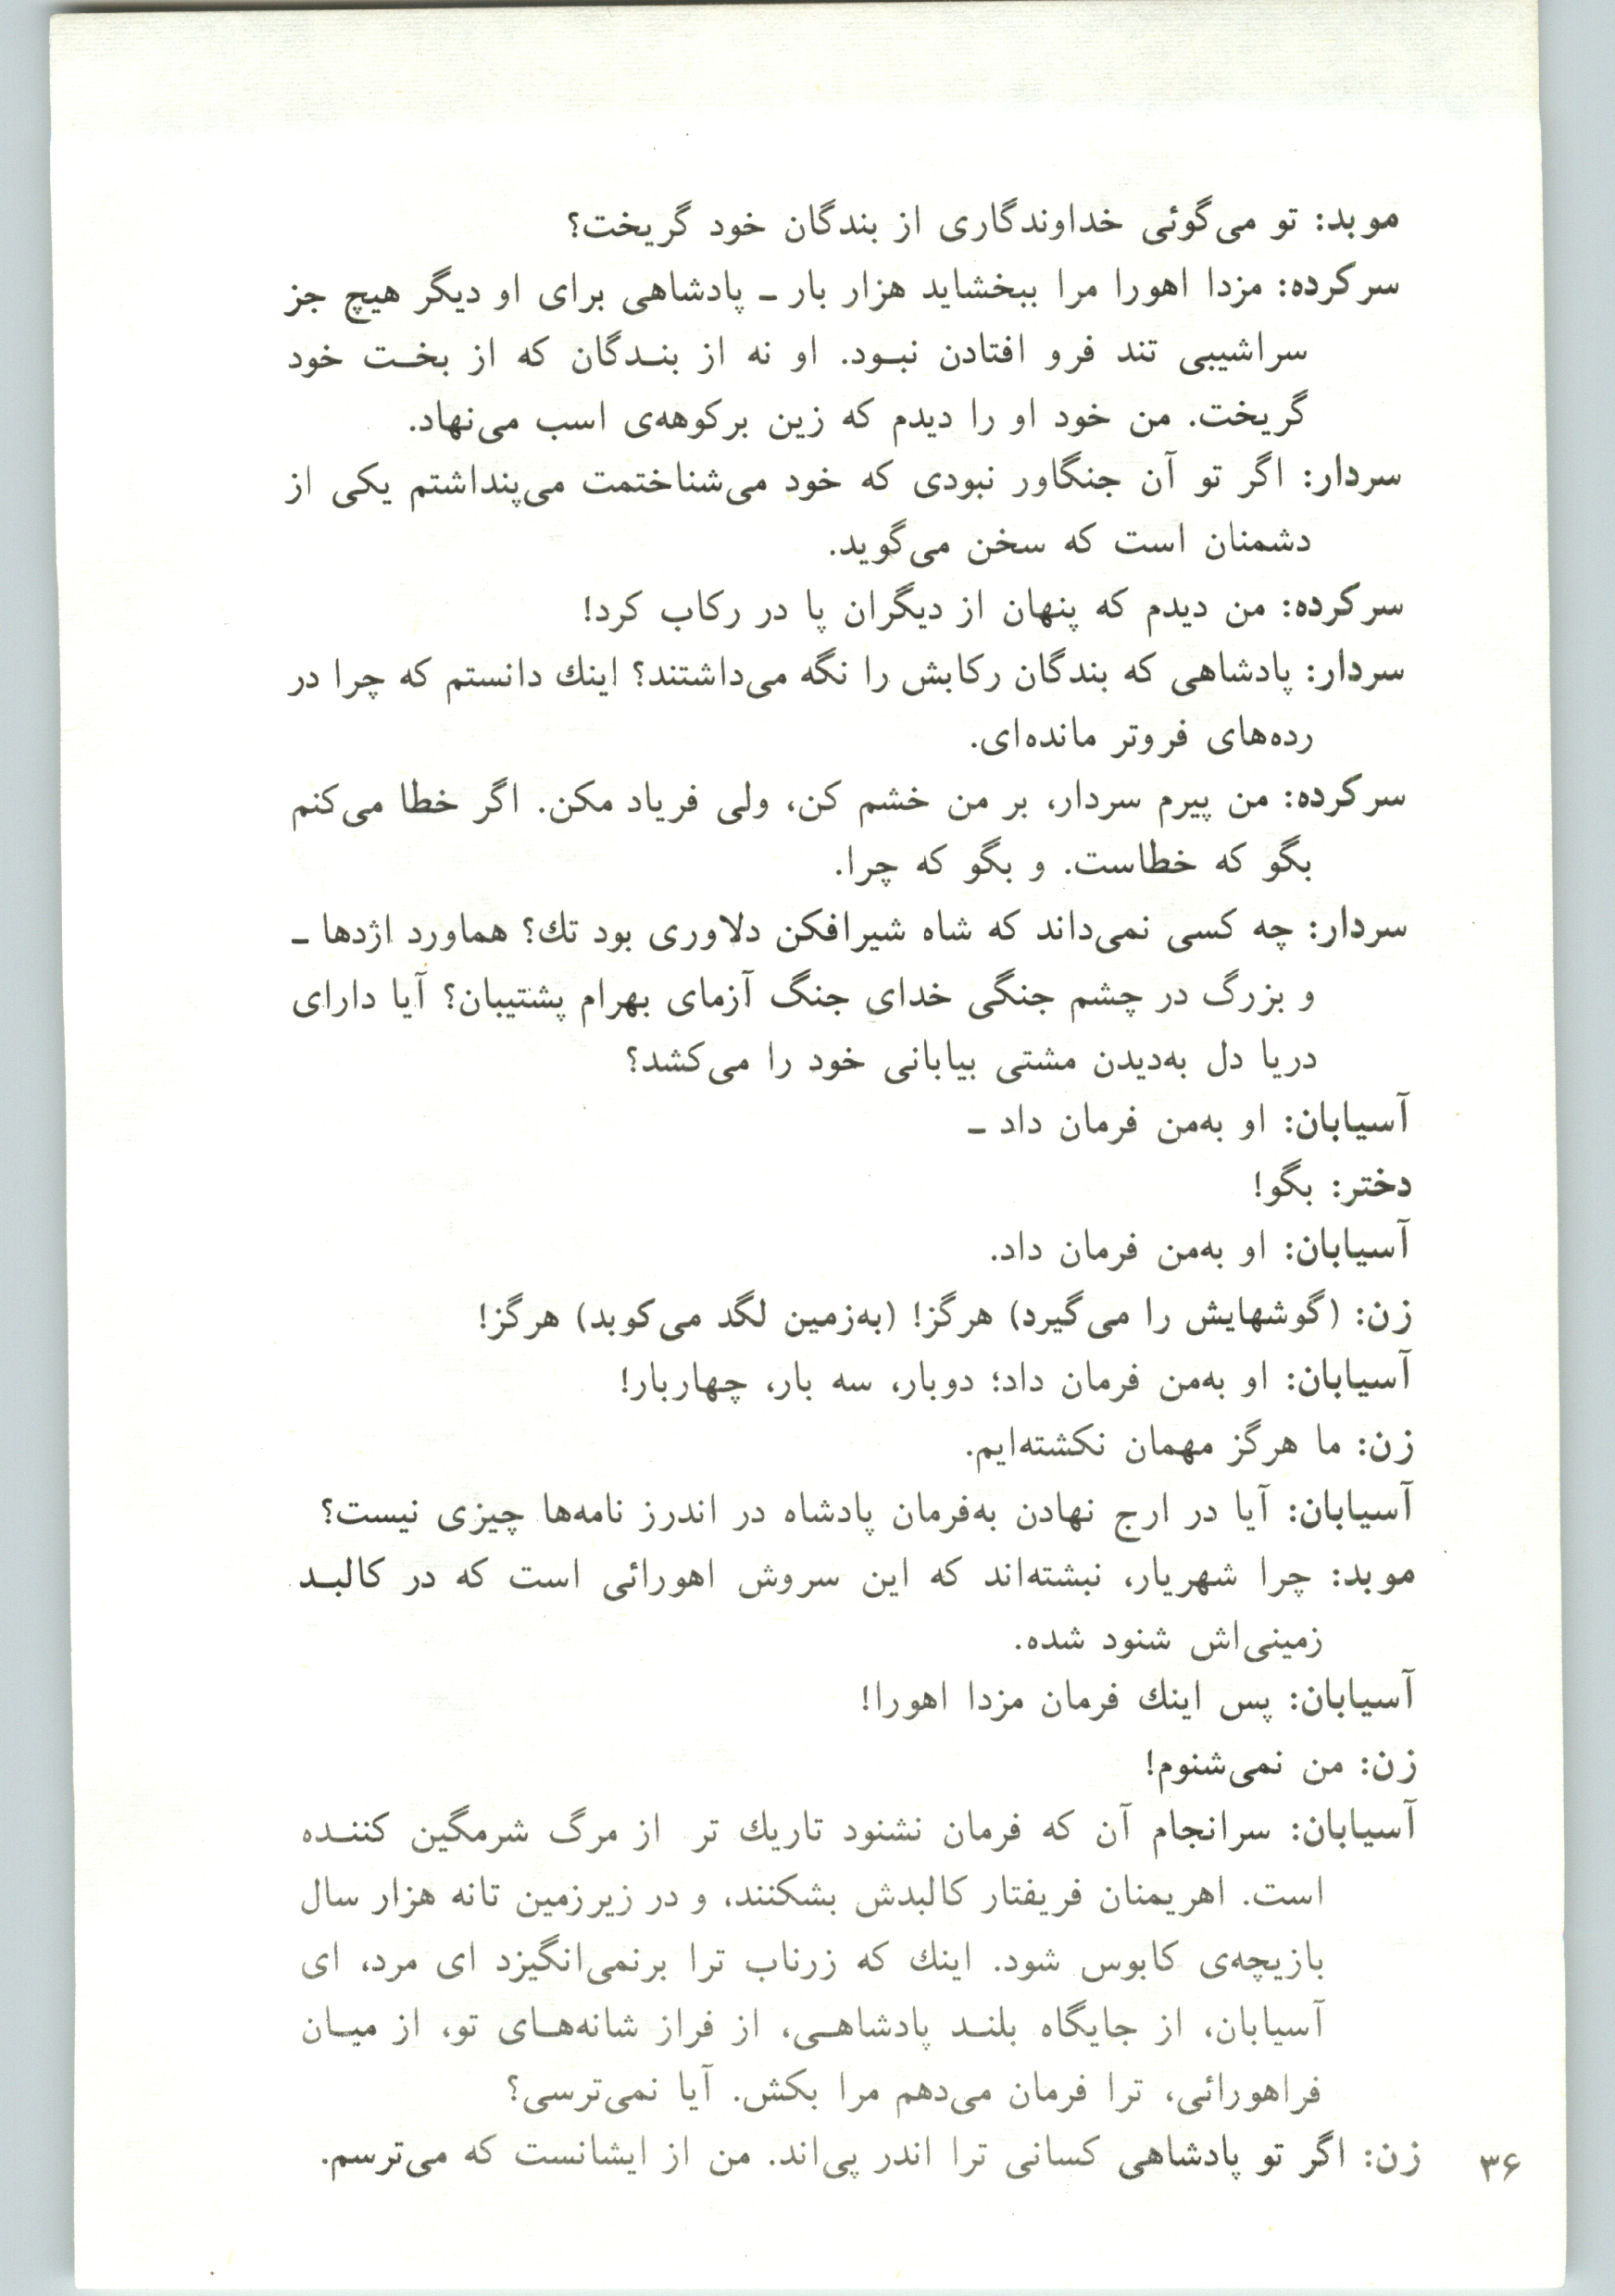 موبد: تو می‌گوئی خداوندگاری از بندگان خود گریخت؟
سرکرده: مزدا اهورا مرا ببخشاید هزار بار ـ پادشاهی برای او دیگر هیچ جز
سراشیبی تند فرو افتادن نبـود. او نه از بنـدگان که از بخـت خود
گریخت. من خود او را دیدم که زین برکوهه‌ی اسب می‌نهاد.
سردار: اگر تو آن جنگاور نبودی که خود می‌شناختمت می‌پنداشتم یکی از
دشمنان است که سخن می‌گوید.
سرکرده: من دیدم که پنهان از دیگران پا در رکاب کرد!
سردار: پادشاهی که بندگان رکابش را نگه می‌داشتند؟ اینك دانستم که چرا در
رده‌های فروتر مانده‌ای.
سرکرده: من پیرم سردار، بر من خشم کن، ولی فریاد مکن. اگر خطا می‌کنم
بگو که خطاست. و بگو که چرا.
سردار: چه کسی نمی‌داند که شاه شیرافکن دلاوری بود تك؟ هماورد اژدها ـ
و بزرگ در چشم جنگی خدای جنگ آزمای بهرام پشتیبان؟ آیا دارای
دریا دل به‌دیدن مشتی بیابانی خود را می‌کشد؟
آسیابان: او به‌من فرمان داد ـ
دختر: بگو!
آسیابان: او به‌من فرمان داد.
زن: (گوشهایش را می‌گیرد) هرگز! (به‌زمین لگد می‌کوبد) هرگز!
آسیابان: او به‌من فرمان داد؛ دوبار، سه بار، چهاربار!
زن: ما هرگز مهمان نکشته‌ایم.
آسیابان: آیا در ارج نهادن به‌فرمان پادشاه در اندرز نامه‌ها چیزی نیست؟
موبد: چرا شهریار، نبشته‌اند که این سروش اهورائی است که در کالبـد
زمینی‌اش شنود شده.
آسیابان: پس اینك فرمان مزدا اهورا!
زن: من نمی‌شنوم!
آسیابان: سرانجام آن که فرمان نشنود تاریك تر از مرگ شرمگین کننـده
است. اهریمنان فریفتار کالبدش بشکنند، و در زیرزمین تانه هزار سال
بازیچه‌ی کابوس شود. اینك که زرناب ترا برنمی‌انگیزد ای مرد، ای
آسیابان، از جایگاه بلنـد پادشاهـی، از فراز شانه‌هـای تو، از میـان
فراهورائی، ترا فرمان می‌دهم مرا بکش. آیا نمی‌ترسی؟
زن: اگر تو پادشاهی کسانی ترا اندر پی‌اند. من از ایشانست که می‌ترسم.
۳۶